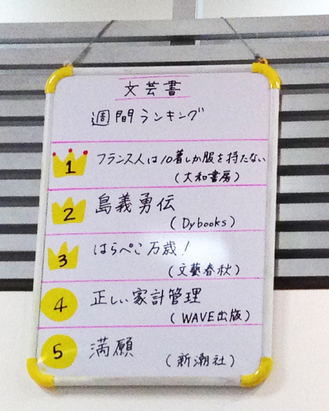 文芸書
週間ランキング
1 フランス人は10着しか服を持たない
(大和書房)
2 島義勇伝
(Dybooks)
3 はらぺこ万歳!
(文藝春秋)
4 正しい家計管理
(WAVE出版)
5 満願
(新潮社)